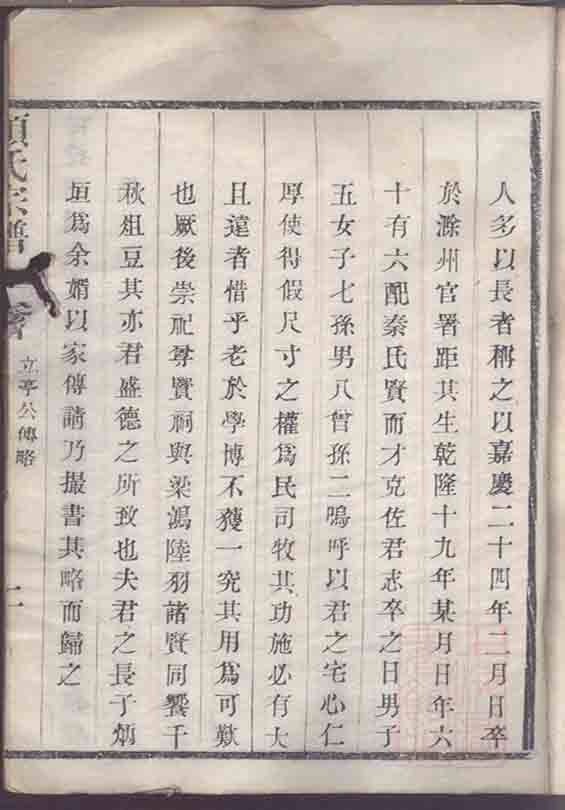 人多以長者稱之以嘉慶二十四年二月日卒
於滁州官署距其生乾隆十九年某月日年六
十有六配秦氏賢而才克佐君志卒之日男子
五女子七孫男八曾孫二嗚呼以君之宅心仁
厚使得假尺寸之權爲民司牧其功施必有大
且遠者惜乎老於學博不獲一究其用爲可歎
也厥後崇祀尊賢祠與梁鴻陸羽諸賢同饗千
秋俎豆其亦君盛德之所致也夫君之長子炳
垣爲余婿以家傳請乃撮書其略而歸之
項氏宗譜
立亭公傳略
二